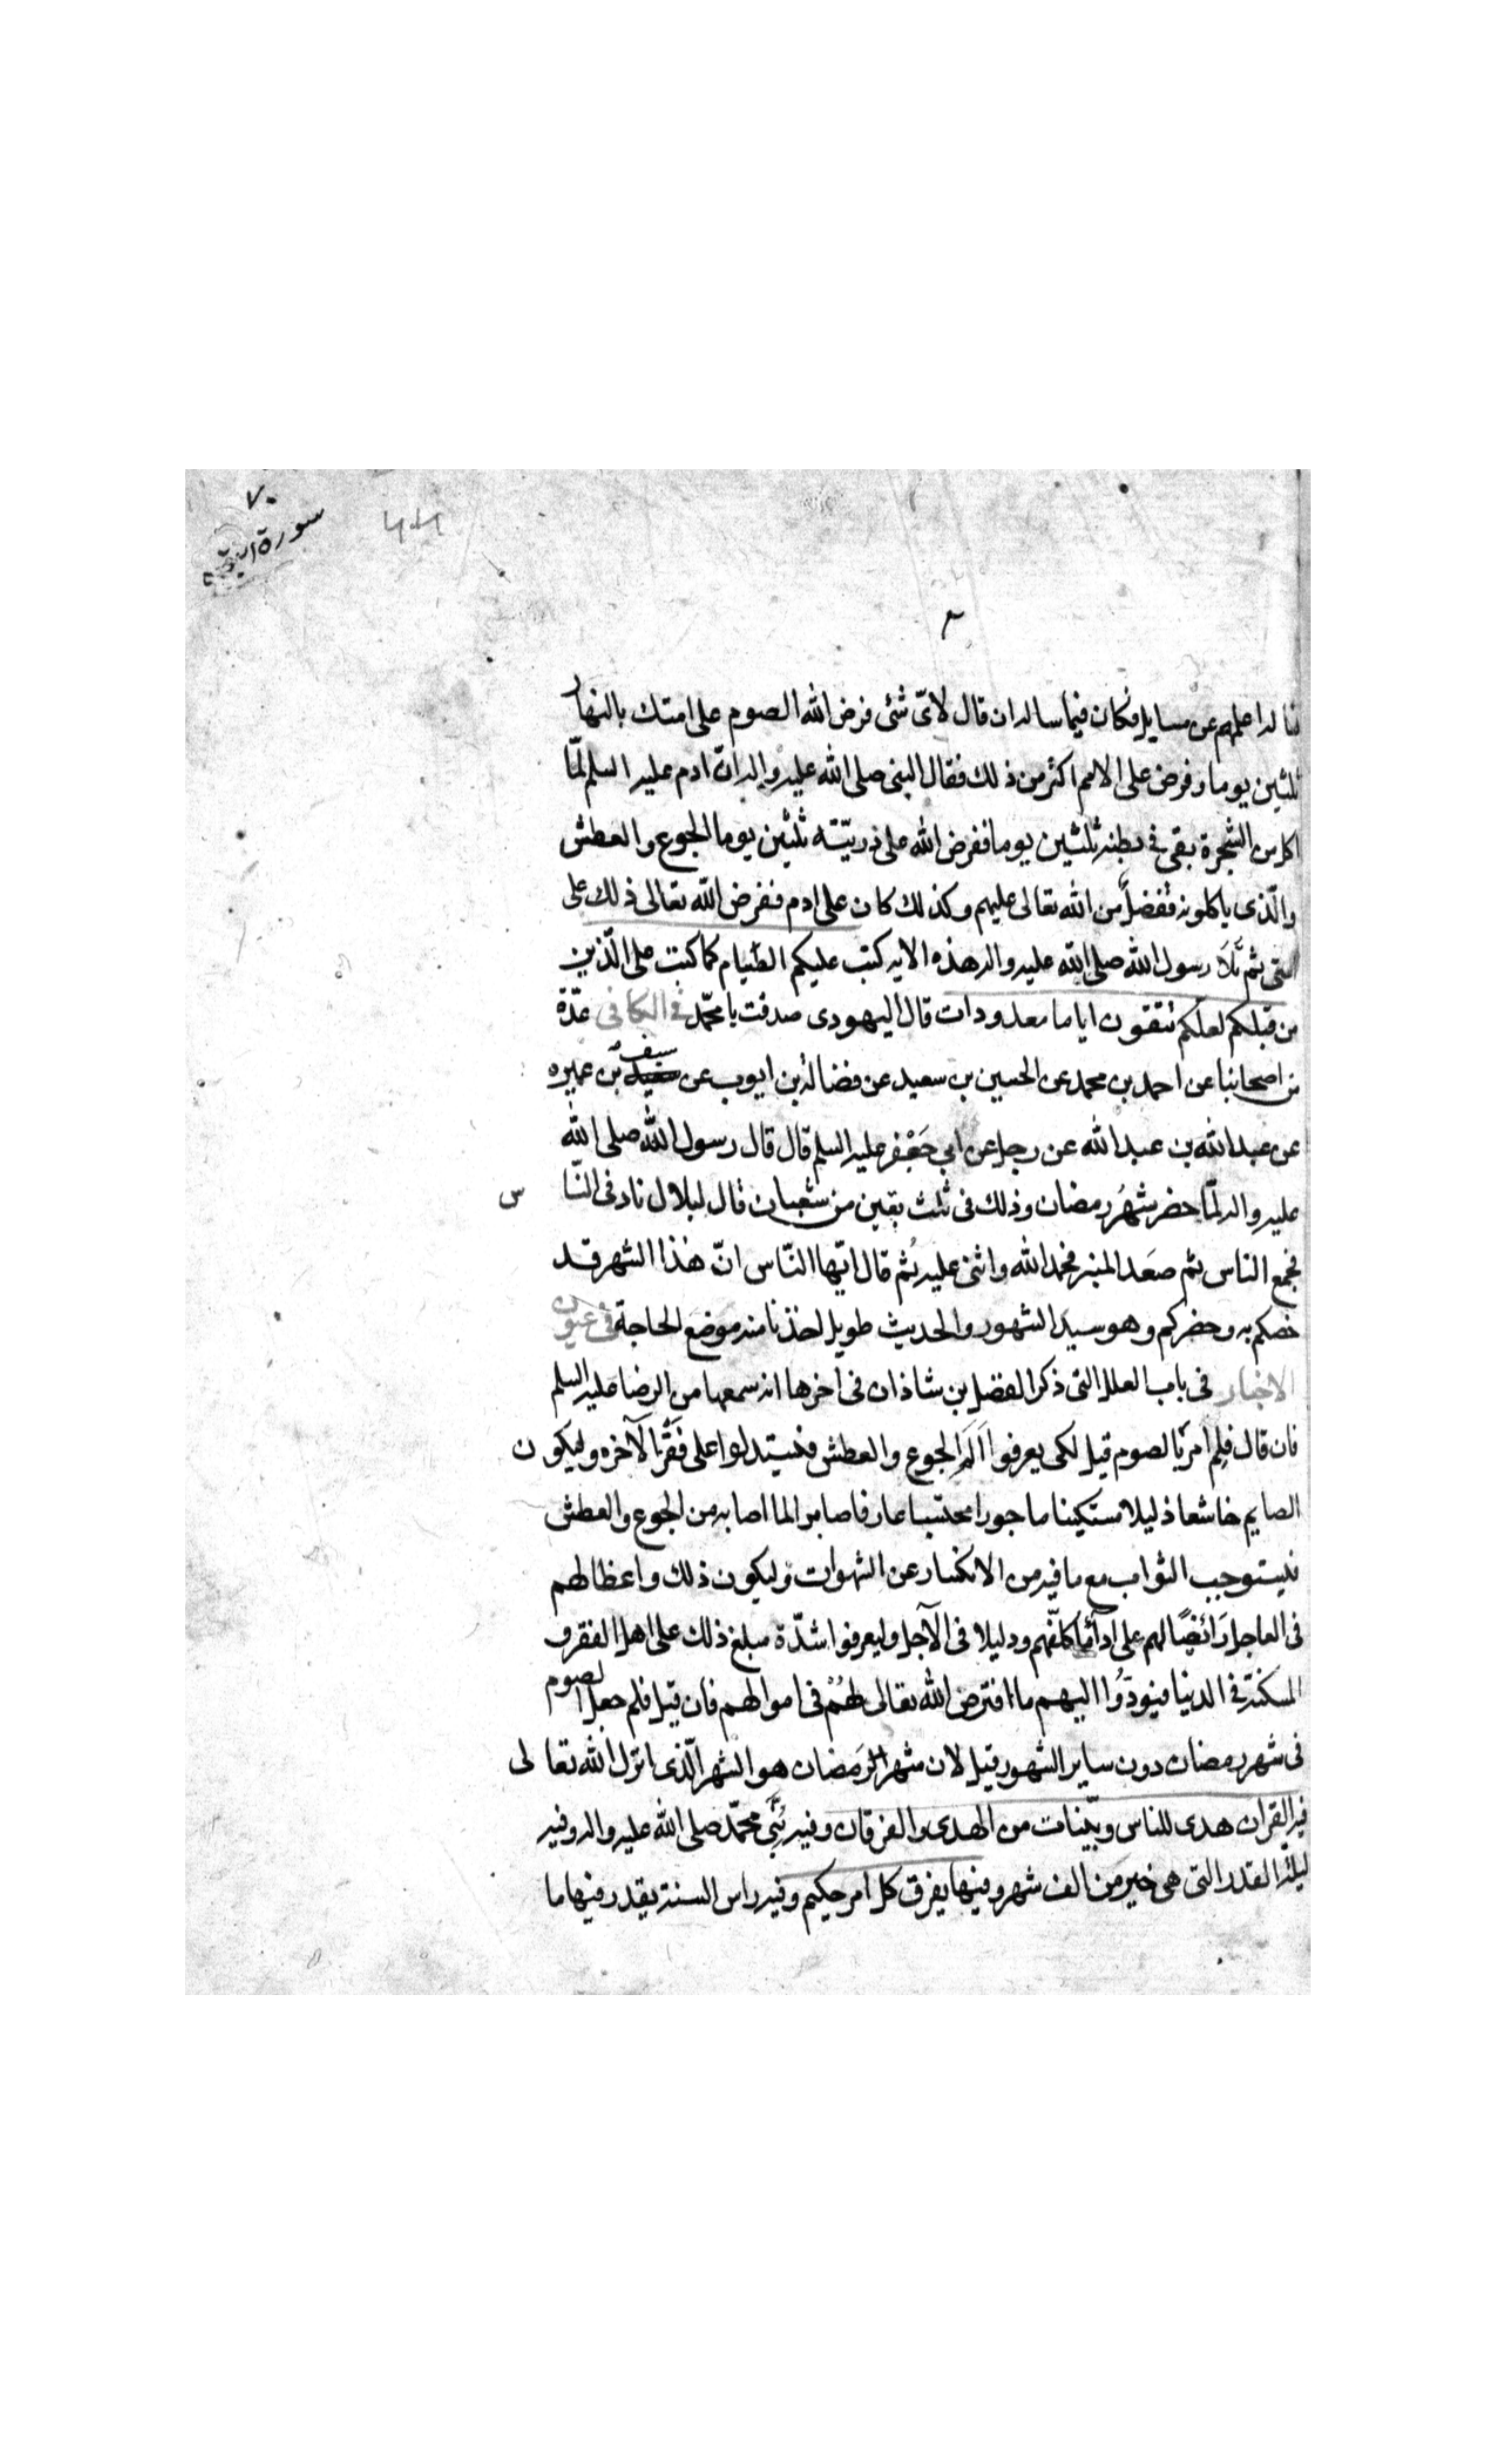 ٧٠
سورة البقرة
فساله اعلمهم عن مسايل فكان فيما ساله ان قال لاىّ شئ فرض الله الصوم على امتك بالنهار
ثلثين يوما وفرض على الامم اكثر من ذلك فقال النبى صلى الله عليه واله ان ادم عليه السلم لمّا
اكل من الشجرة بقى فى بطنه ثلثين يوما ففرض الله على ذريّته ثلثين يوما الجوع والعطش
والّذى ياكلونه تفضلٌ من الله تعالى عليهم وكذلك كان على ادم ففرض الله تعالى ذلك على
امتى ثم تَلَا رسول الله صلى الله عليه واله هذه الايه كتب عليكم الصّيام كما كتب على الّذين
من قبلكم لعلكم تتقون اياما معدودات قال اليهودى صدقت يا محمّد فى الكافى عدّة
من اصحابنا عن احمد بن محمد عن الحسين بن سعيد عن فضالة بن ايوب عن سيف بن عميره
عن عبد الله بن عبد الله عن رجل عن ابى جَعْفر عليه السلم قال قال رسول الله صلى الله
عليه واله لمّا حضر شهرُ رمضان وذلك فى ثلث بقين من شعبان قال لبلال ناد فى النّاس
فجمع الناس ثم صعَد المنبر فحمد الله واثنى عليه ثم قال ايّها النّاس انّ هٰذا الشهر قد
خصكم به وحضركم وهو سيد الشهور والحديث طويل اخذنا منه موضع الحاجة فى عيون
الاخبار فى باب العلل التى ذكر الفضل بن شاذان فى اخرها انه سمعها من الرضا عليه السلم
فان قال فلِم امر بالصوم قيل لكى يعرفوا اَلَمَ الجوع والعطش فيستدلوا على فَقْرِ الآخره وليكون
الصايم خاشعا ذليلا مستكينا ماجورا محتسبا عارفا صابرا لما اصابه من الجوع والعطش
فيستوجب الثواب مع ما فيه من الانكسار عن الشهوات وليكون ذلك واعظا لهم
فى العاجل رَائضًا لهم على اداۤء ما كلّفهم ودليلا فى الآجل وليعرفوا شدّة مبلغ ذلك على اهل الفقر و
المسكنة فى الدنيا فيؤدّوُا اليهم ما افترض الله تعالى لهُمْ فى اموالهم فان قيل فلم جعل الصوم
فى شهر رمضان دون ساير الشهور قيل لان شهر الرَمضان هو الشهر الّذى انزل الله تعالى
فيه القران هدى للناس وبيّنات من الهدى والفرقان وفيه نُبِّىَ محمّد صلى الله عليه واله وفيه
ليلة القدر التى هى خير من الف شهر وفيها يفرق كل امر حكيم وفيه راس السنة يقدر فيها ما